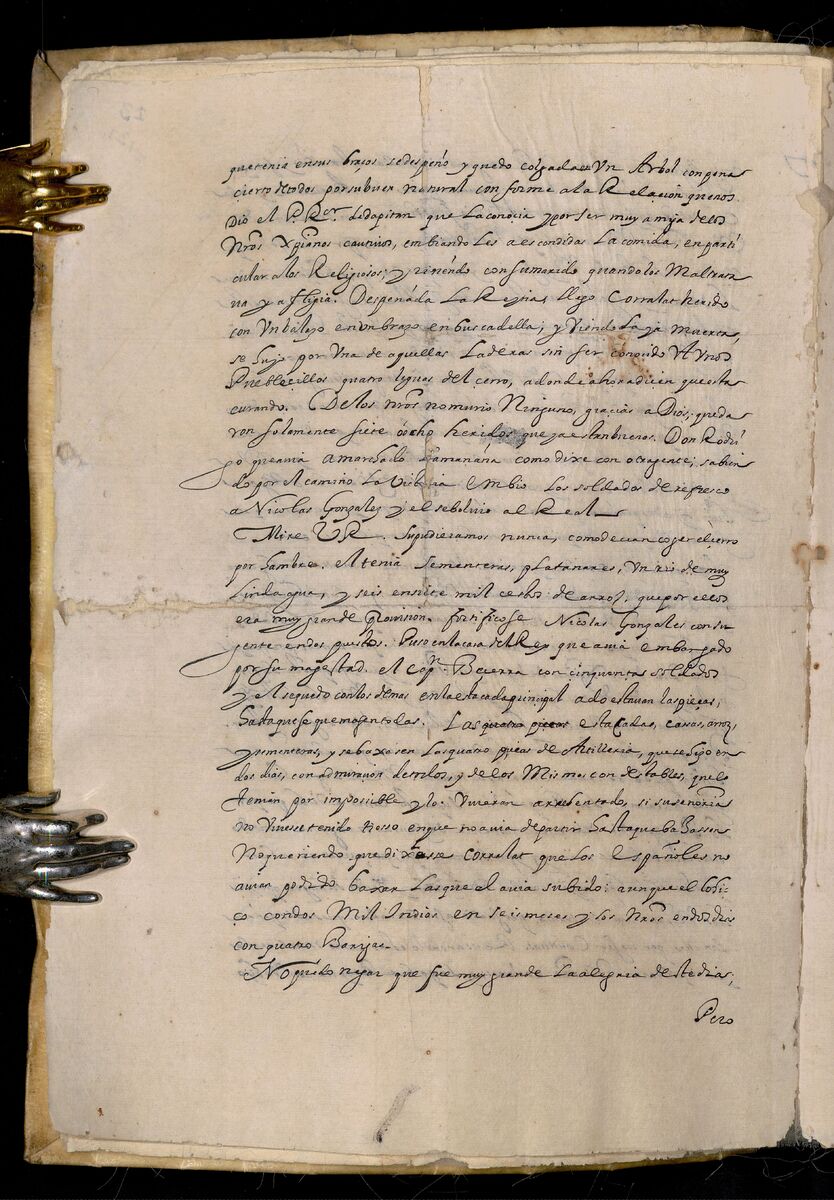 que tenia en sus braços se despeño y quedo colgada en Vn Arbol con pena
cierto de todos por su buen natural con forme a la Relaçion que nos
Dio el P Ror. de dapitan que La conocia y por ser muy amiga de los
Nros Xpianos cautivos, embiando Les a escondidas La comida, en parti
cular a los Religiosos; y riñendo con su marido quando los Maltrata
ua y afligia. Despeñada La Reyna, llego Corralat herido
con Vn balazo en vn brazo en busca della; y viendo La ya muerta,
se huyo por Vna de aquellas Laderas sin ser conoçido A Vnos
Pueblecillos quatro leguas del cerro, a donde ahora dicen que esta
curando. De los nros no murio Ninguno, graçias a Dios, queda
ron solamente siete o ocho heridos que ya estan buenos. Don Rodri
go que auia Amarchado La mañana como dixe con otra gente; sabien
do por el camino La Victoria Embio Los soldados de refresco
a Nicolas Gonzalez y el se boluio al Real
Mire VR. Si pudieramos nunca, como decian coger el cerro
por hambre. El tenia Sementeras, platanares, Vn rio de muy
Linda agua, y seis en siete mil cestos de arroz, que por ellos
era muy grande provision. fortificose Nicolas Gonzales con su
gente en dos puestos. Puso en la casa del Rey que auia embargado
por su magestad. el Capn. Beçerra con cinquenta soldados
y el se quedo con los demas en la estacada principal ado estauan las pieças,
hasta que se quemasen todas. Las quatro pieças estacadas, casas, arroz,
y sementeras, y se baxasen Las quatro pieças de Artilleria, que se hizo en
dos dias, con admiraçion de todos, y de los Mismos condestables, que lo
tenian por imposible y lo Vvieran arrebentado, si su señoria
no Vviese tenido tiesso en que no auia de partir hasta que baxassen
No queriendo que dixesse Corralat que Los Españoles no
auian podido baxar Las que el auia subido: aunque el lo hi
ço con dos Mil Indios en seis meses y los Nros en dos dias
con quatro Barijas.
No puedo negar que fue muy grande La alegria de este dia,
Pero